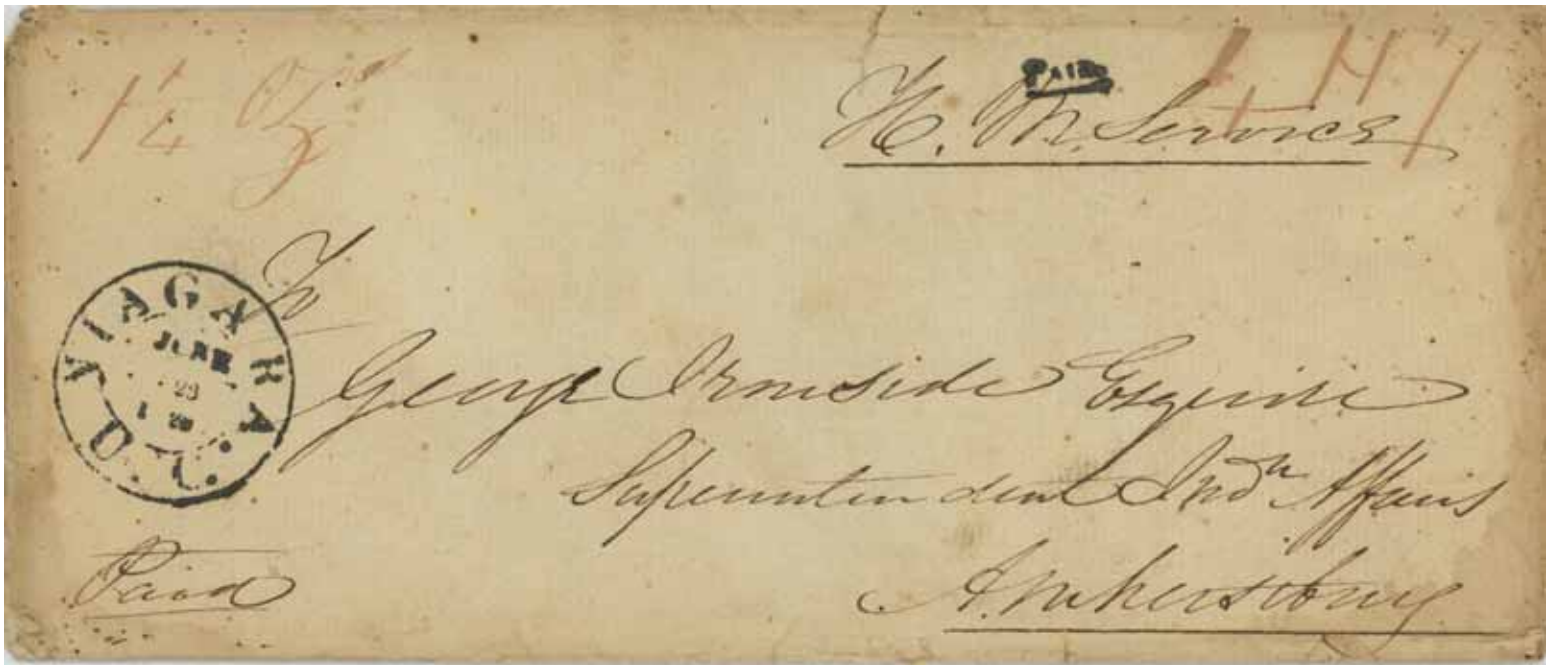 1 1/4 Oz
PAID
H. M. Service
To
NIAGARA. U.C.
JUNE
29
George Ironside Esquire
Superintendent Indn Affairs
Amherstburg
Paid